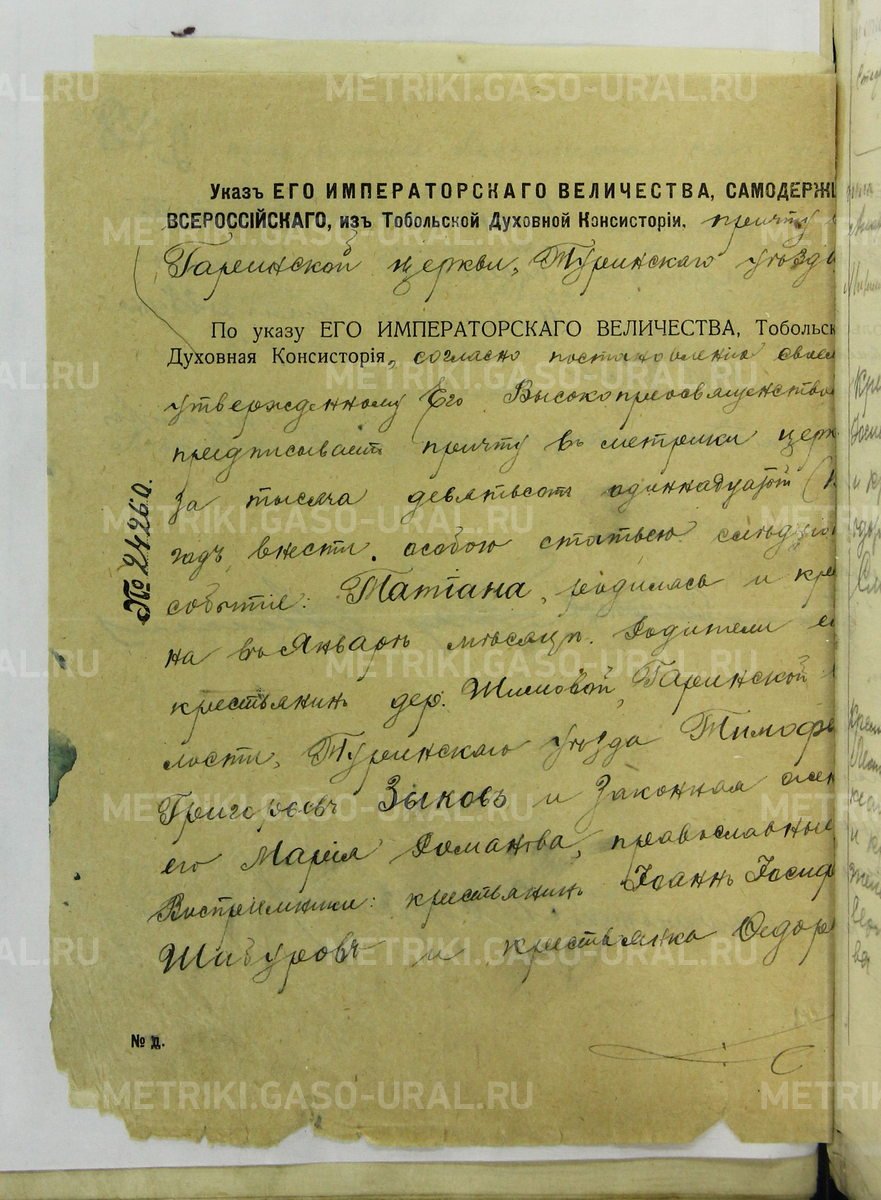 Указъ ЕГО ИМПЕРАТОРСКАГО ВЕЛИЧЕСТВА, САМОДЕРЖ
ВСЕРОССІЙСКАГО, изъ Тобольской Духовной Консисторіи, причту
Гаринской церкви, Туринскаго уѣзда
По указу ЕГО ИМПЕРАТОРСКАГО ВЕЛИЧЕСТВА, Тобольск
Духовная Консисторія, согласно постановленія своем
утвержденному Его Высокопреосвященство
предписываетъ причту въ метрики церк
за тысяча девятьсотъ одиннадцатый
годъ внести особою статьею слѣдую
событіе: Татіана, родилась и кре
на въ Январѣ мѣсяцѣ. Родители е
крестьянинъ дер. Шиповой, Гаринской
лости, Туринскаго уѣзда Тимофе
Григорьевъ Зыковъ и законная жен
его Марія Романова, православные
Воспріемники: крестьянинъ Іоаннъ Іосиф
Шабуровъ и крестьянка Ѳедор
№ 24260.
№ д.
METRIKI.GASO-URAL.RU